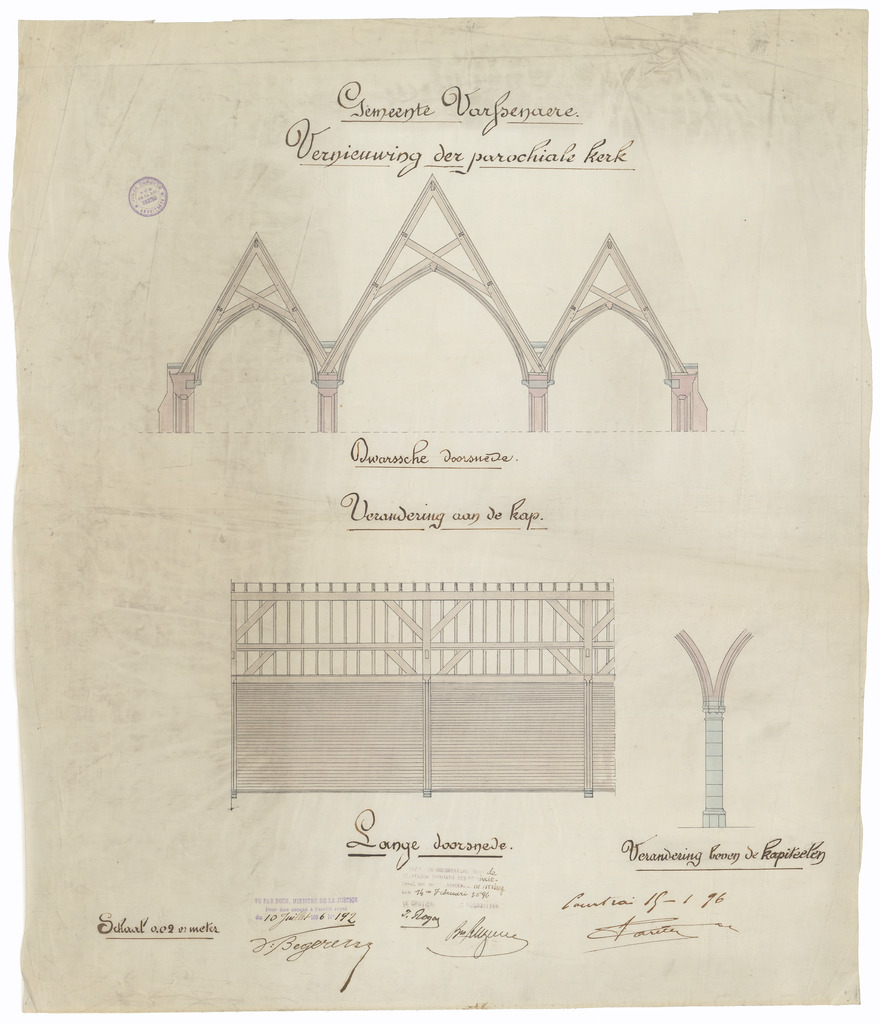 Gemeente Varssenaere.
Vernieuwing der parochiale kerk
Dwarssche doorsnede.
Verandering aan de kap.
Lange doorsnede.
Verandering boven de kapiteelen
VU PAR NOUS, MINISTRE DE LA JUSTICE
du 10 Juillet
V. Begerem
14 Februari 1896
Courtrai 15-1 96
Schaal 0.02 p. meter